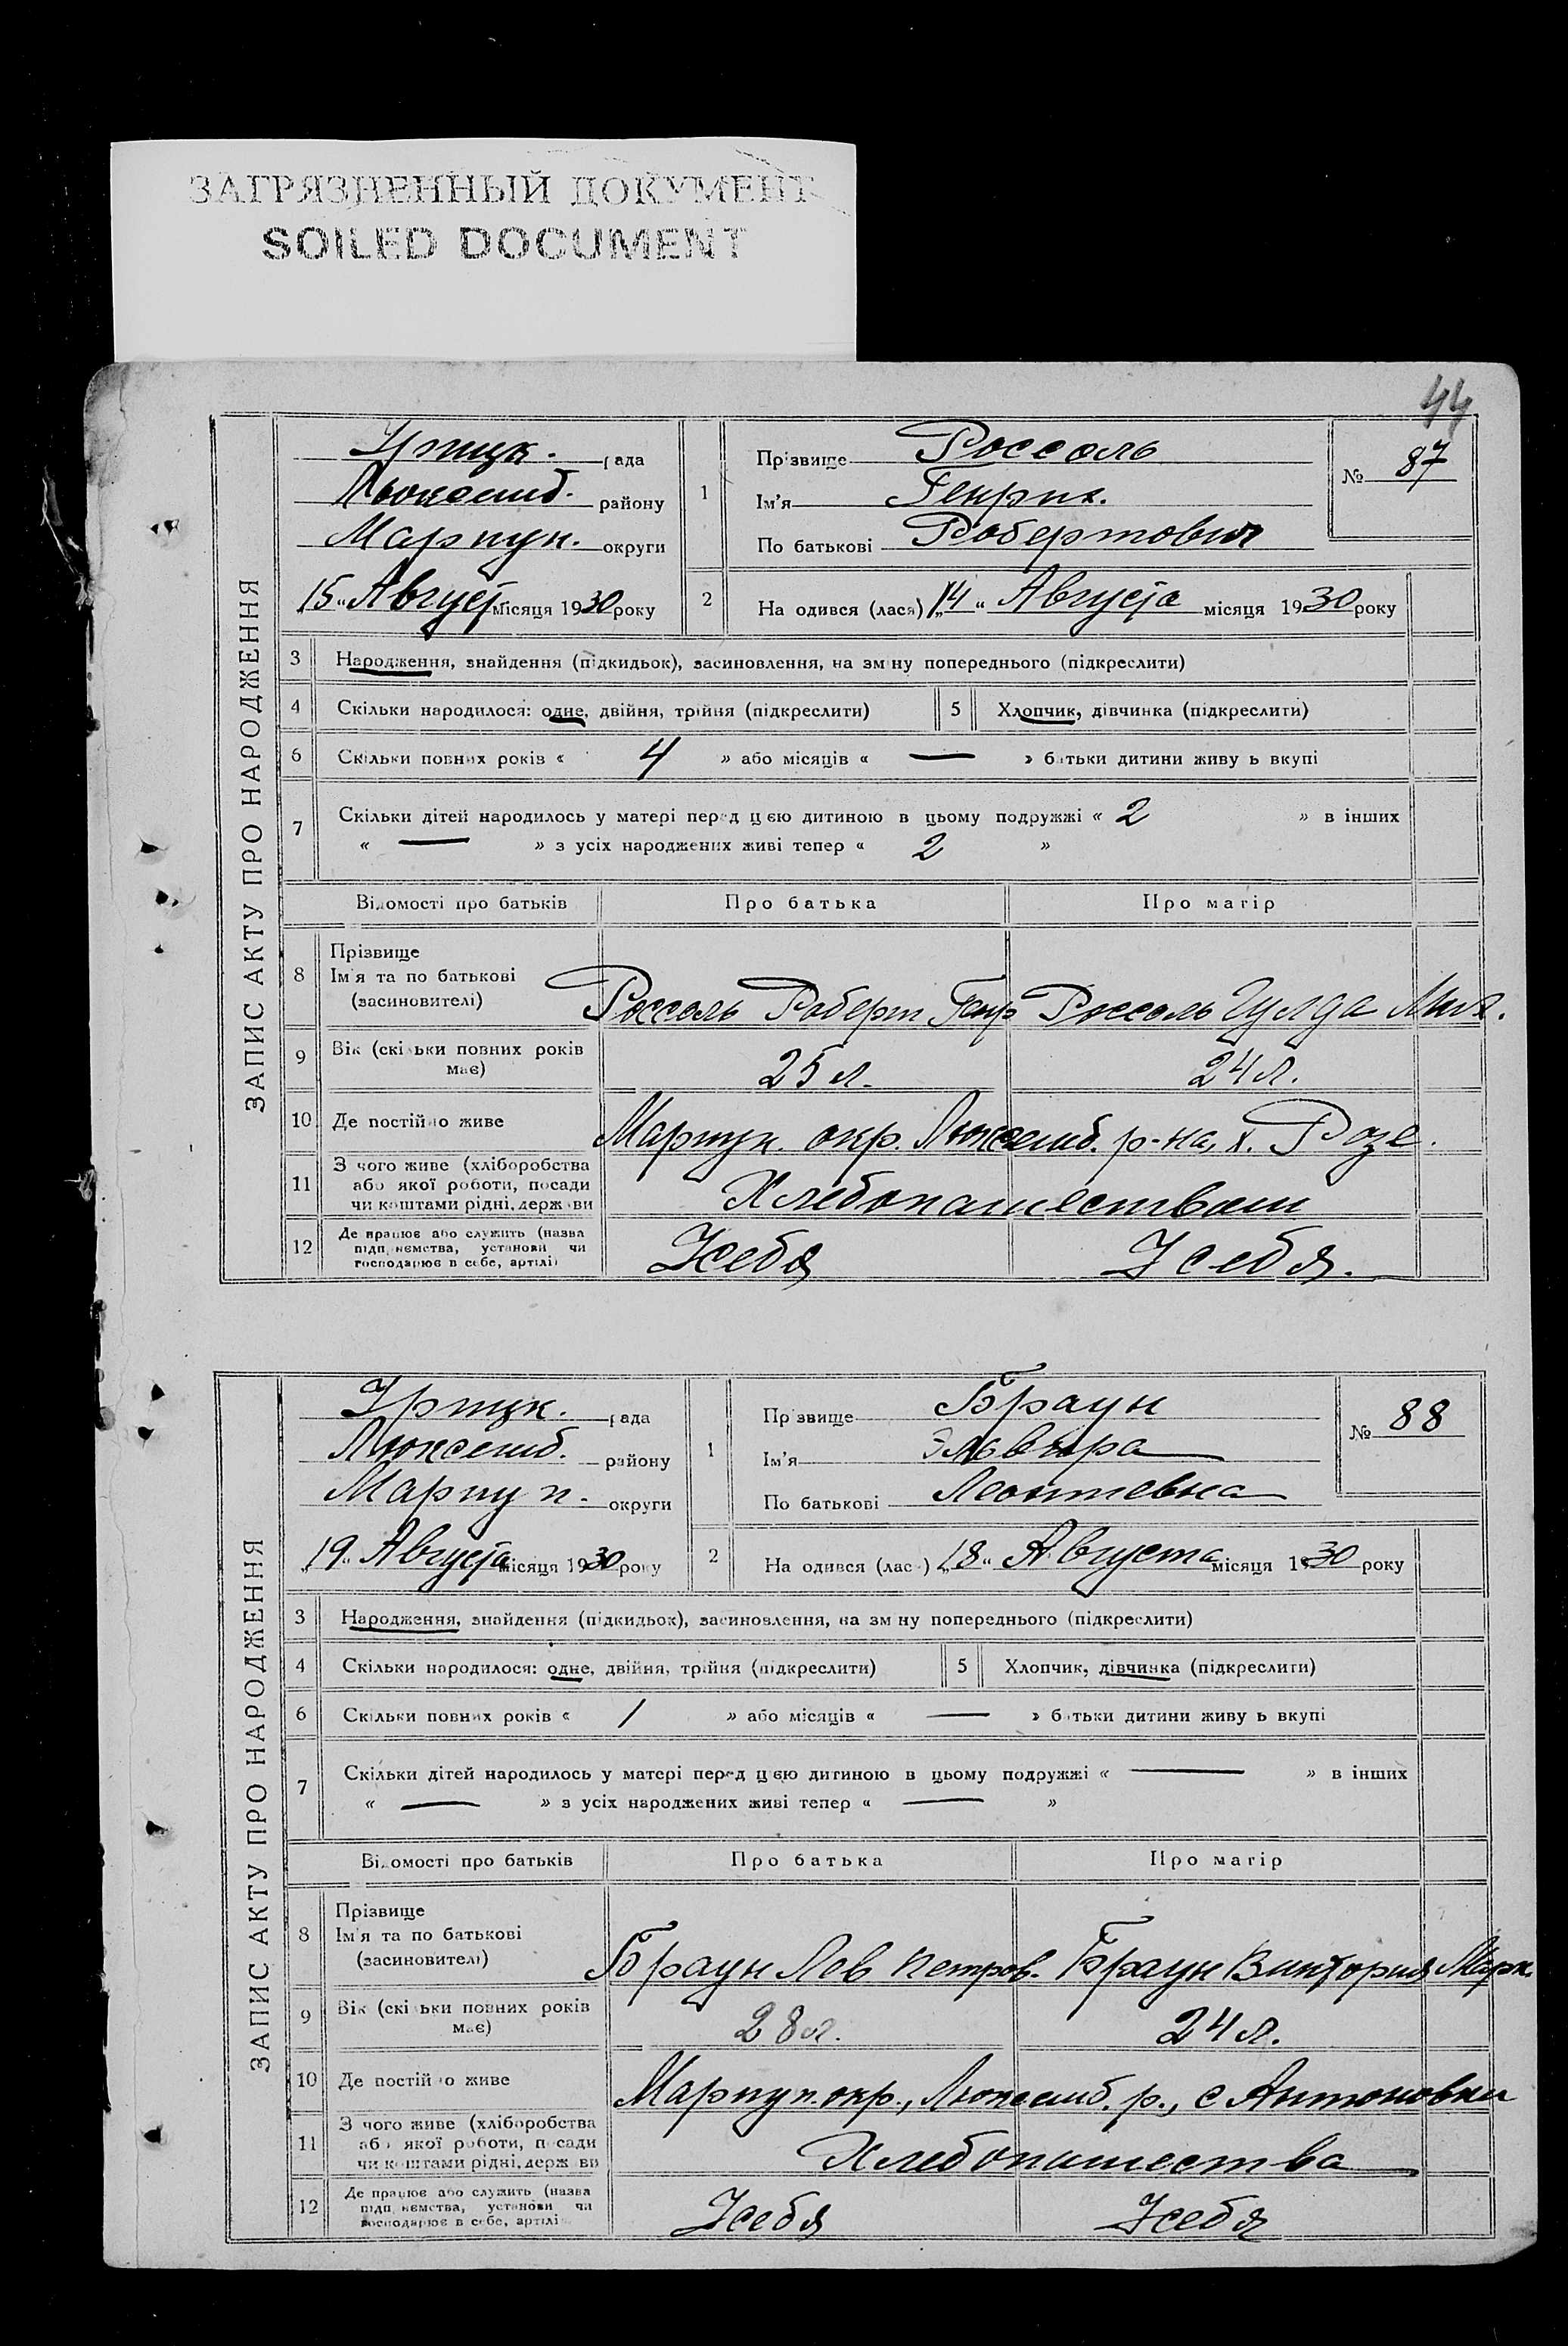 ЗАГРЯЗНЕННЫЙ ДОКУМЕНТ
SOILED DOCUMENT
44
ЗАПИС АКТУ ПРО НАРОДЖЕННЯ
Урицк. рада
Люксемб. району
Мариуп. округи
15 „ Август місяця 1930 року
1
Прізвище Россоль
Ім'я Генрих.
По батькові Робертович
№ 87
2
Народився (лася) „14 „ Августа місяця 1930 року
3 Народження, знайдення (підкидьок), засиновлення, на зміну попереднього (підкреслити)
4 Скільки народилося: одне, двійня, трійня (підкреслити) 5 Хлопчик, дівчинка (підкреслити)
6 Скільки повних років « 4 » або місяців « — » батьки дитини живуть вкупі
7 Скільки дітей народилось у матері перед цією дитиною в цьому подружжі « 2 » в інших
« — » з усіх народжених живі тепер « 2 »
Відомості про батьків Про батька Про матір
8 Прізвище
Ім'я та по батькові
(засиновителі)
Россоль Роберт Генр Россоль Гулда Мих.
9 Вік (скільки повних років
має)
25 л. 24 л.
10 Де постійно живе Мариуп. окр. Люксемб. р-на, х. Розе.
11 З чого живе (хліборобства
або якої роботи, посади
чи коштами рідні, держави
Хлебопашеством
12 Де працює або служить (назва
підприємства, установи чи
господарює в себе, артілі)
У себя У себя.
ЗАПИС АКТУ ПРО НАРОДЖЕННЯ
Урицк. рада
Люксемб. району
Мариуп. округи
„19 „ Августа місяця 1930 року
1
Прізвище Браун
Ім'я Эльвира
По батькові Леонтевна
№ 88
2
Народився (лася) „18 „ Августа місяця 1930 року
3 Народження, знайдення (підкидьок), засиновлення, на зміну попереднього (підкреслити)
4 Скільки народилося: одне, двійня, трійня (підкреслити) 5 Хлопчик, дівчинка (підкреслити)
6 Скільки повних років « 1 » або місяців « — » батьки дитини живуть вкупі
7 Скільки дітей народилось у матері перед цією дитиною в цьому подружжі « — » в інших
« — » з усіх народжених живі тепер « — »
Відомості про батьків Про батька Про матір
8 Прізвище
Ім'я та по батькові
(засиновителі)
Браун Лев Петров. Браун Виктория Марк.
9 Вік (скільки повних років
має)
28 л. 24 л.
10 Де постійно живе Мариуп. окр., Люксемб. р., с Антоновки
11 З чого живе (хліборобства
або якої роботи, посади
чи коштами рідні, держави
Хлебопашества
12 Де працює або служить (назва
підприємства, установи чи
господарює в себе, артілі
У себя У себя